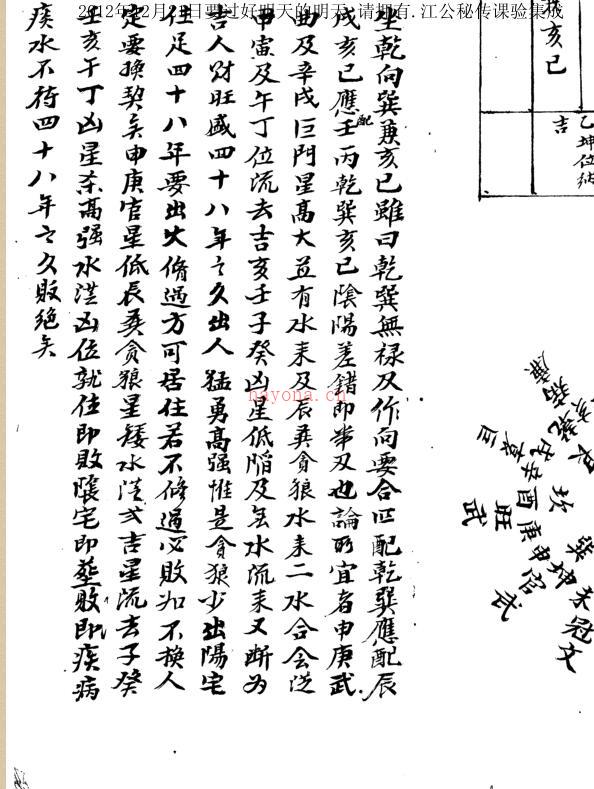 2012年12月21日要过好明天的明天,请拥有.江公秘传课验集成
亥巳
乙坤位納
吉
坐乾向巽兼亥巳雖曰乾巽無禄及作向要合四配乾巽應配辰
戌亥巳應配壬丙乾巽亥巳陰陽差錯即此及也論所宜者申庚武
曲及辛戌巨門星高大並有水来及辰巽貪狼水来二水合会從
申寅及午丁位流去吉亥壬子癸凶星低陷及無水流来又断為
吉人财旺盛四十八年之久出人猛勇高强惟是貪狼少出陽宅
住足四十八年要出火脩過方可居住若不修過必敗如不換人
定要換契矣申庚官星低辰巽貪狼星矮水從弍吉星流去子癸
壬亥午丁凶星柰高强水從凶位就位即敗陰宅即塟敗即疾病
痰水不待四十八年之久敗絶矣
hayona.cn
乾
戌
辛
酉
庚
申
坤
未
坎
巽
旺
官
冠
武
文
武
巨